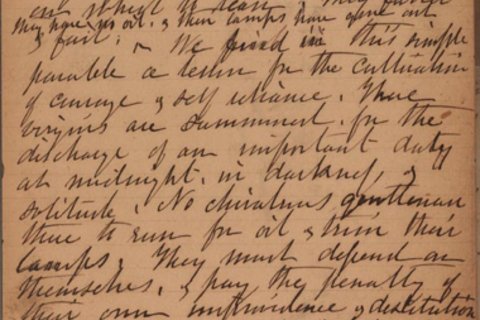 on what to lean. They
They have no oil. & their lamps have gone out
& fail: We find in this simple
parable a lesson for the cultivation
of courage & self reliance. These
virgins are summoned for the
discharge of an important duty
at midnight, in darkness, &
solitude. No chivalrous gentleman
there to run for oil & trim their
lamps. They must depend on
themselves. & pay the penalty of
their own improvidence & destitution